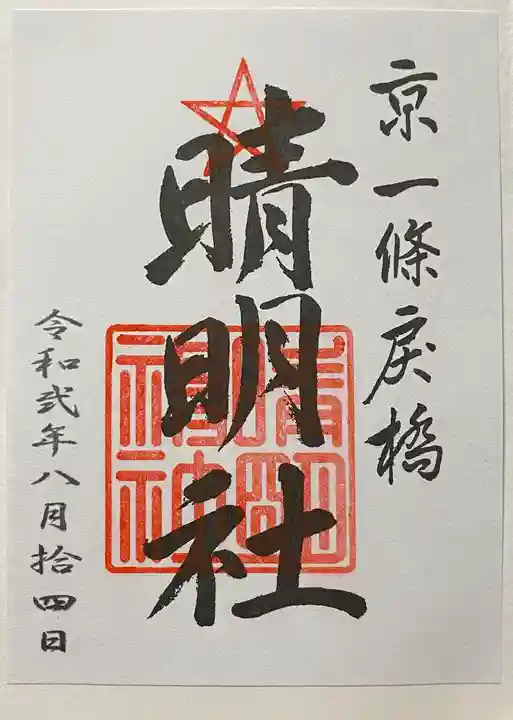 京一條戻橋
晴明社
令和弐年八月拾四日